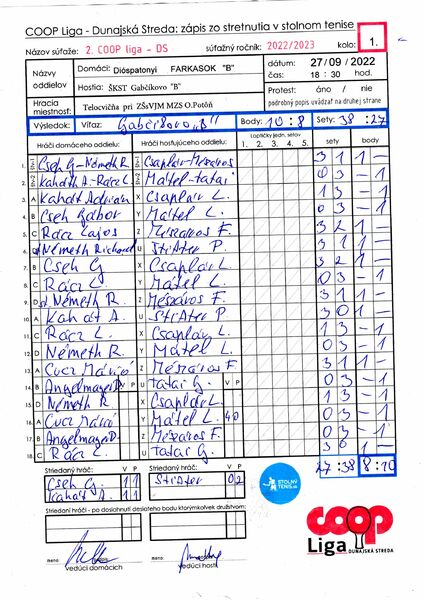 COOP Liga - Dunajská Streda: zápis zo stretnutia v stolnom tenise
Názov súťaže: 2. COOP liga - DS súťažný ročník: 2022/2023 kolo: 1.
Názvy oddielov
Domáci: Dióspatonyi FARKASOK "B"
Hostia: ŠKST Gabčíkovo "B"
dátum: 27/09/2022
čas: 18 : 30 hod.
Hracia miestnosť: Telocvičňa pri ZŠsVJM MZS O.Potôň
Protest: áno / nie
podrobný popis uvádzať na druhej strane
Výsledok: Víťaz: Gabčíkovo "B" Body: 10:8 Sety: 38 : 27
Hráči domáceho oddielu Hráči hosťujúceho oddielu Loptičky jedn. setov sety body
1. 2. 3. 4. 5.
1. Cseh G - Németh R Csaplár - Mészáros 3 1 1 -
2. Kaháth A. - Rácz L Mátel - Tatai 0 3 - 1
3. A Kaháth Adrián X Csaplár L. 1 3 - 1
4. B Cseh Gábor Y Mátel L. 0 3 - 1
5. C Rácz Lajos Z Mészáros F. 3 2 1 -
6. D Németh Richard U Stráter P. 3 1 1 -
7. B Cseh G X Csaplár L. 3 2 1 -
8. C Rácz L Y Mátel L. 0 3 - 1
9. D Németh R. Z Mészáros F. 3 1 1 -
10. A Kahát A. U Stráter P. 0 3 - 1
11. C Rácz L. X Csaplár L. 1 3 - 1
12. D Németh R. Y Mátel L. 0 3 - 1
13. A Cucz Márió Z Mészáros F. 3 1 1 -
14. B Angelmayer D. V P U Tatai G. V P 0 3 - 1
15. D Németh R X Csaplár L. 1 3 - 1
16. A Cucz Márió Y Mátel L. 4 0 0 3 - 1
17. B Angelmayer D. Z Mészáros F. 0 3 - 1
18. C Rácz L. U Tatai G. 3 0 1 -
27:38 8:10
Striedaný hráč: V P Striedaný hráč: V P
Cseh G. 1 1 Stráter 0 2
Kahát A. 1 1
STOLNÝ TENIS.SK
Striedaní hráči - po dosiahnutí desiateho bodu ktorýmkoľvek družstvom
coop
Liga DUNAJSKÁ STREDA
meno: vedúci domácich
meno: vedúci hostí